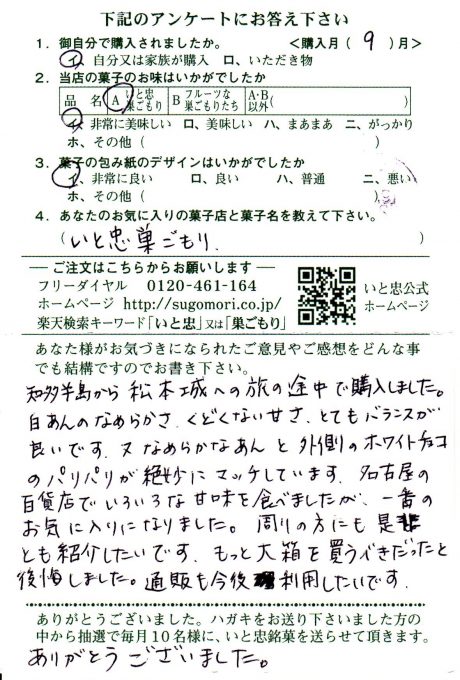 下記のアンケートにお答え下さい
1. 御自分で購入されましたか。 <購入月( 9 )月>
イ、自分又は家族が購入 ロ、いただき物
2. 当店の菓子のお味はいかがでしたか
品 名 A いと忠巣ごもり B フルーツな巣ごもりたち A・B以外( )
イ、非常に美味しい ロ、美味しい ハ、まあまあ ニ、がっかり
ホ、その他( )
3. 菓子の包み紙のデザインはいかがでしたか
イ、非常に良い ロ、良い ハ、普通 ニ、悪い
ホ、その他( )
4. あなたのお気に入りの菓子店と菓子名を教えて下さい。
(いと忠巣ごもり. )
― ご注文はこちらからお願いします ―
フリーダイヤル 0120-461-164
ホームページ http://sugomori.co.jp/
楽天検索キーワード「いと忠」又は「巣ごもり」
いと忠公式
ホームページ
あなた様がお気づきになられたご意見やご感想をどんな事
でも結構ですのでお書き下さい。
知多半島から松本城への旅の途中で購入しました。
白あんのなめらかさ、くどくない甘さ、とてもバランスが
良いです。又なめらかなあんと外側のホワイトチョコ
のパリパリが絶妙にマッチしています。名古屋の
百貨店でいろいろな甘味を食べましたが、一番の
お気に入りになりました。周りの方にも是非
とも紹介したいです。もっと大箱を買うべきだったと
後悔しました。通販も今後利用したいです.
ありがとうございました。ハガキをお送り下さいました方の
中から抽選で毎月10名様に、いと忠銘菓を送らせて頂きます。
ありがとうございました。